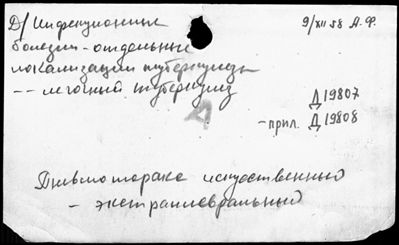 Д/ Инфекционные
9/XII 58 А.Ф.
болезни - отдельные
локализации туберкулеза
-- легочный туберкулез
Д 19807
- прил. Д 19808
Пневмоторакс искуственный
- экстраплевральный